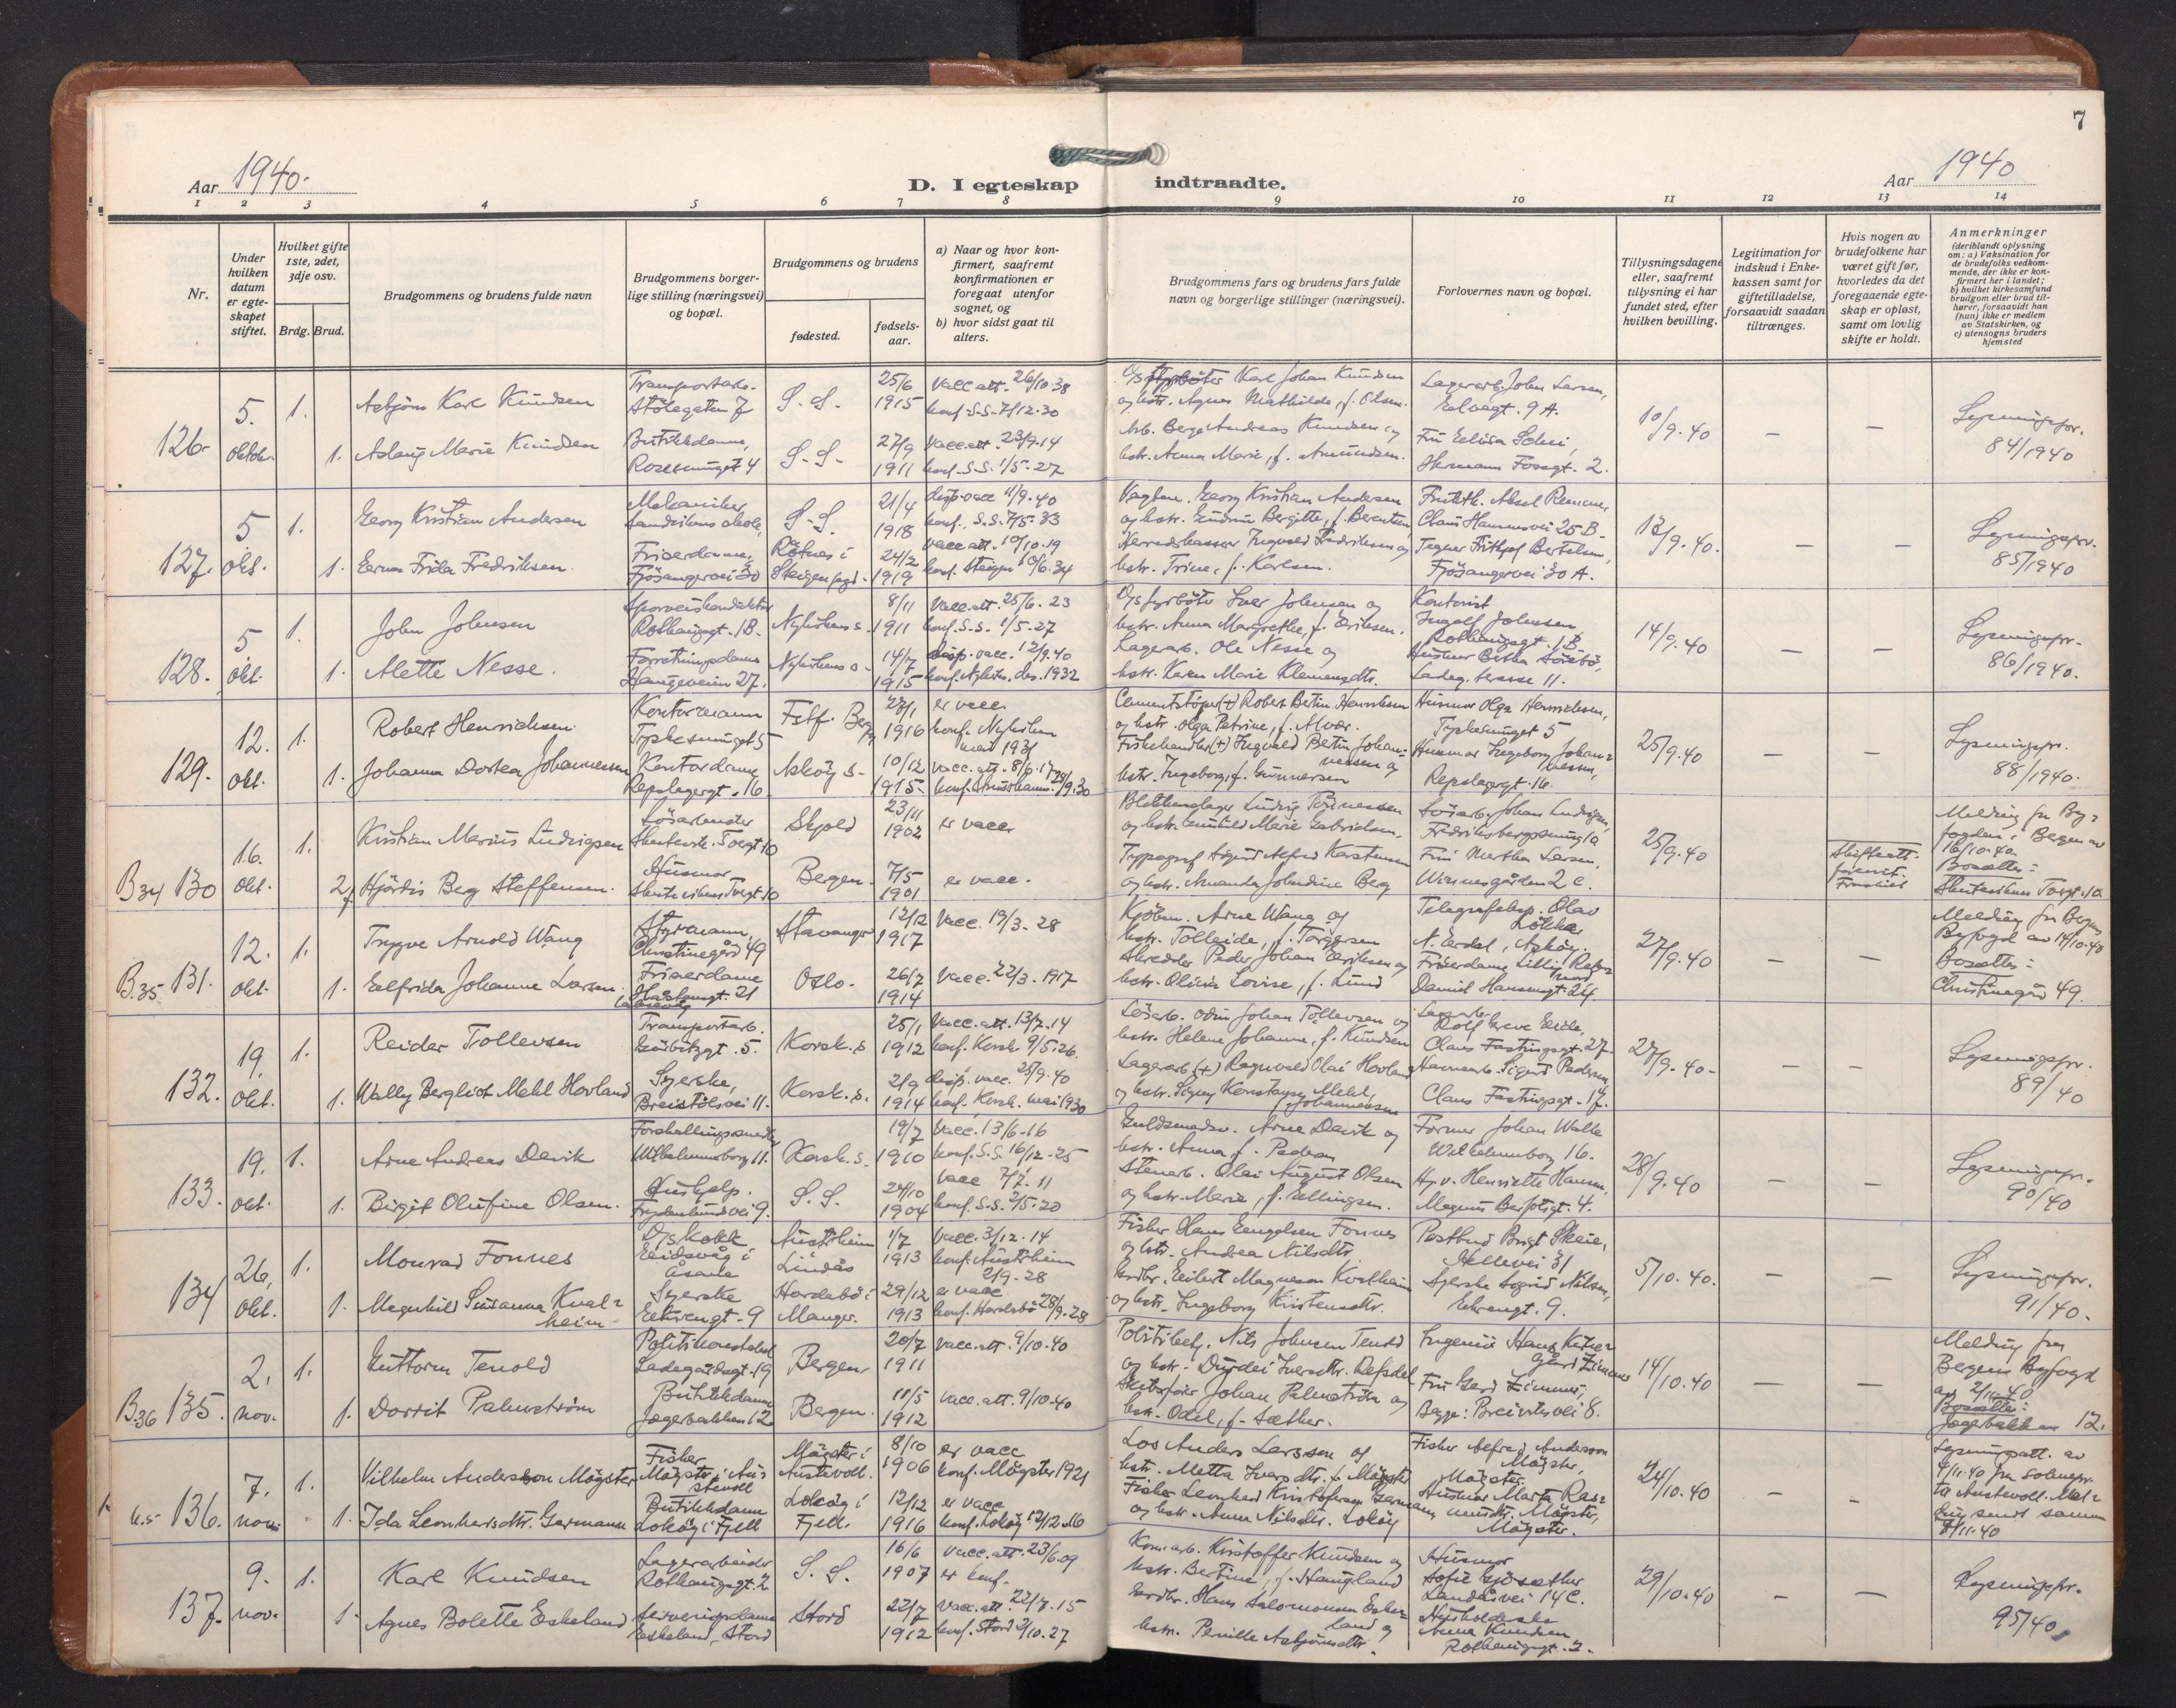 7
Aar 1940.
D. I egteskap indtraadte.
Aar 1940
1 2 3 4 5 6 7 8 9 10 11 12 13 14
Nr.
Under hvilken datum er egteskapet stiftet.
Hvilket gifte 1ste, 2det, 3dje osv.
Brdg. Brud.
Brudgommens og brudens fulde navn
Brudgommens borgerlige stilling (næringsvei) og bopæl.
Brudgommens og brudens
fødested.
fødsels-aar.
a) Naar og hvor konfirmert, saafremt konfirmationen er foregaat utenfor sognet, og
b) hvor sidst gaat til alters.
Brudgommens fars og brudens fars fulde navn og borgerlige stillinger (næringsvei).
Forlovernes navn og bopæl.
Tillysningsdagene eller, saafremt tillysning ei har fundet sted, efter hvilken bevilling.
Legitimation for indskud i Enkekassen samt for giftetilladelse, forsaavidt saadan tiltrænges.
Hvis nogen av brudefolkene har været gift før, hvorledes da det foregaaende egteskap er opløst, samt om lovlig skifte er holdt.
Anmerkninger
(deriblandt oplysning om: a) Vaksination for de brudefolks vedkommende, der ikke er konfirmert her i landet;
b) hvilket kirkesamfund brudgom eller brud tilhører, forsaavidt han (hun) ikke er medlem av Statskirken, og
c) utensogns bruders hjemsted
126. 5. oktober
1. Asbjørn Karl Knudsen Transportarb. Stølegaten 7 S.S. 25/6 1915 vacc.att. 26/10.38 konf. S.S. 7/12.30
Karl Johan Knudsen og hstr. Agnes Mathilde, f. Olsen.
Lagerarb. John Larsen, 9A.
1. Aslaug Marie Knudsen Butikkdame, Rosesmuget 4 S.S. 27/9 1911 vacc.att. 23/9.14 konf. S.S. 1/5.27
Arb. Berge Andreas Knudsen og hstr. Anna Marie, f. Amundsen.
Fru Elisa Schei, Herman Fossgt. 2.
10/9.40 – – Lysningspr. 84/1940
127. 5 okt.
1. Georg Kristian Andersen Mekaniker, S.S. 21/4 1918 disp. vacc 11/9.40 konf. S.S. 7/5.33
Georg Kristian Andersen og hstr. Gudrun Bergitte, f. Berentsen
Claus Hansensvei 25 B.
1. Erna Frida Fredriksen. Frisørdame, Fjøsangervei 30 Røtnes i Steigen 24/2 1919 vacc att. 10/10.19 konf. Steigen 10/6.34
Herredskasser Ingvald Fredriksen og hstr. Trine, f. Karlsen.
Tegner Frithjof Bertelsen, Fjøsangervei 30 A.
12/9.40. – – Lysningspr. 85/1940
128. 5 okt.
1. John Johnsen Sporveiskonduktør Rothaugsgt. 1B. Nykirkens s. 8/11 1911 vacc.att. 25/6.23 konf. S.S. 1/5.27
D/s fyrbøter Iver Johnsen og hstr. Anna Margrethe, f. Eriksen.
Kontorist Ingolf Johnsen Rothaugsgt. 1B
1. Alette Nesse. Forretningsdame Haugeveien 27. Nykirkens s. 14/7 1915 disp. vacc. 12/9.40 konf. Nykirken. des. 1932
Lagerarb. Ole Nesse og hstr. Karen Marie Klemensdtr.
Husmor Betha Ladeg. terasse 11.
14/9.40 – – Lysningspr. 86/1940.
129. 12. okt.
1. Robert Henrichsen Kontormann Tyskesmuget 5 Bergen 27/1 1916 er vacc. konf. Nykirken mai 1931
(+) Robert Bertin Henrichsen og hstr. Olga Petrine, f. Alvær.
Husmor Olga Henrichsen, Tyskesmuget 5
1. Johanna Dortea Johannessen Kontordame, Repslagergt. 16 Askøy s. 10/12 1915 vacc. att. 8/6.17 28/9.30
Fiskehandler (+) Ingvald Bertin Johannessen og hstr. Ingeborg, f. Gunnersen
Husmor Ingeborg Johannessen, Repslagergt. 16
25/9.40 – – Lysningspr. 88/1940.
B34 130 16. okt.
1. Kristian Marius Ludvigsen Løsarbeider Skutevik. Torvgt 10 Skjold 23/11 1902 er vacc.
Ludvig Tønnessen og hstr. Gunhild Marie Gabrielsen.
Løsarb. Johan Ludvigsen, Fredriksbergsmug 1a
2. Hjørdis Berg Steffensen. Husmor Skutevikens Torvgt. 10 Bergen. 7/5 1901 er vacc.
Typograf Sigurd Alfred Karstensen og hstr. Amanda Johndine Berg
Fru Martha Larsen, 2c.
25/9.40 Skifteatt.
Melding fra Byfogden i Bergen av 16/10.40. Bosatte: Skutevikens Torvgt. 10
B.35 131. 12. okt.
1. Trygve Arnold Wang Styrmann, Christinegård 49 Stavanger 12/12 1917 Vacc. 19/3.28
Kjøbm. Arne Wang og hstr. Tolleide, f. Torgersen
Telegrafeksp. Olav Løkker N. Erdal, Askøy.
1. Elfrida Johanne Larsen. Frisørdame Oslo. 26/7 1914 Vacc. 22/3.1917
Skredder Peder Johan Eriksen og hstr. Olivia Lovise, f. Lund
Frisørdame Lilly Daniel Hansensgt. 24
27/9.40 – –
Melding fra Bergen Byfogd av 14/10.40 Bosatte: Christinegård 49.
132. 19. okt.
1. Reidar Tollevsen Transportarb. Gørbitzgt. 5. Korsk.s 25/1 1912 Vacc.att. 13/7.14 konf. Korsk. 9/5.26.
Løsarb. Odin Johan Tollevsen og hstr. Helene Johanne, f. Knudsen
Lagerarb. Rolf Greve Eide, Claus Fastingsgt. 27
1. Wally Bergliot Mehl Hovland Syerske, Breistølsvei 11. Korsk.s. 2/9 1914 disp. vacc. 25/9.40 konf. Korsk. mai 1930
Lagerarb. (+) Ragnvald Olai Hovland og hstr. Signy Konstanse Mehl, f. Johannessen
Havnearb. Sigurd Pedersen, Claus Fastingsgt. 17.
27/9.40. – – Lysningspr. 89/40
133. 19. okt.
1. Arne Andreas Davik Wilhelminsborg 11. Korsk.s. 19/7 1910 Vacc. 13/6.16 konf. S.S. 16/12.25
Guldsmedsv. Arne Davik og hstr. Anna f. Pedersen
Former Johan Walle Wilhelmnborg 16.
1. Birgit Olufine Olsen. Hushjelp. Frydenlundsvei 9. S.S. 24/10 1904 vacc 7/7.11 konf. S.S. 2/5.20
Stenarb. Olai August Olsen og hstr. Marie, f. Ellingsen.
Hj.v. Henriette Hansen, Magnus Barfotsgt. 4.
28/9.40 – – Lysningspr. 90/40
134 26. okt.
1. Monrad Fonnes D/s kokk Eidsvåg i Åsane Austrheim Lindås 1/7 1913 vacc. 3/12.14 konf. Austrheim 2/9.28
Fisker Hans Engelsen Fonnes og hstr. Andrea Nilsdtr.
Postbud Brigt Skeie, Hellevei 31
1. Magnhild Susanna Kvalheim Syerske Ekrengt. 9 Hordabø i Manger. 29/12 1913 er vacc. konf. Hordabø 28/9.28
Gårdbr. Eilert Magnesen Kvalheim og hstr. Ingeborg Kristensdtr.
Syerske Sigrid Nilsen, Ekrengt. 9.
5/10.40. – – Lysningspr. 91/40.
B.36 135. 2. nov.
1. Guttorm Tenold Politikonstabel Ladegårdsgt. 19 Bergen 20/7 1911 vacc.att. 9/10.40
Politibetj. Nils Johnsen Tenold og hstr. Durdei Iversdtr. Refsdal
Ingeniør Hans Zimmer
1. Dorrit Palmstrøm Butikkdame Jægerbakken 12 Bergen. 11/5 1912 vacc.att. 9/10.40
Skibsfører Johan Palmstrøm og hstr. Odel, f. Sæther.
Fru Gerd Zimmer, Begge: Breistølsvei 8.
14/10.40 – –
Melding fra Bergen Byfogd av 2/11.40 Bosatte: Jægerbakken 12.
u.s 136. 7. nov.
1. Vilhelm Anderson Møgster Fisker Møgster i Austevoll Møgster i Austevoll. 8/10 1906 er vacc konf. Møgster 1921
Los Anders Larssen og hstr. Metta Iversdtr. Møgster
Fisker Alfred Anderson Møgster, Møgster.
1. Ida Leonhardsdtr. Germann Butikkdame Lokøy i Fjell Lokøy i Fjell. 12/12 1916 er vacc
Fisker Leonhard Kristoffersen Germann, og hstr. Anna Nilsdtr. Lokøy
Husmor Marta Rasmusdtr. Møgster, Møgster.
24/10.40 – –
Lysningsatt. av 4/11.40 fra sokneprr. til Austevoll. Melding sendt samme 8/11.40
137. 9. nov.
1. Karl Knudsen Lagerarbeider Rothaugsgt. 2 S.S. 16/6 1907 vacc.att. 23/6.09 er konf.
Kristoffer Knudsen og hstr. Bertine, f. Haugland
Husmor Sofie Gjøsæther Landåsvei 14C.
1. Agnes Bolette Eskeland Serveringsdame Eskeland, Stord Stord 22/7 1912 vacc.att. 22/7.15 konf. Stord 2/10.27
Gårdbr. Hans Salomonsen Eskeland og hstr. Pernille Asbjørnsdtr.
Husholderske Anna Knudsen Rothaugsgt. 2.
29/10.40 – – Lysningspr. 95/40